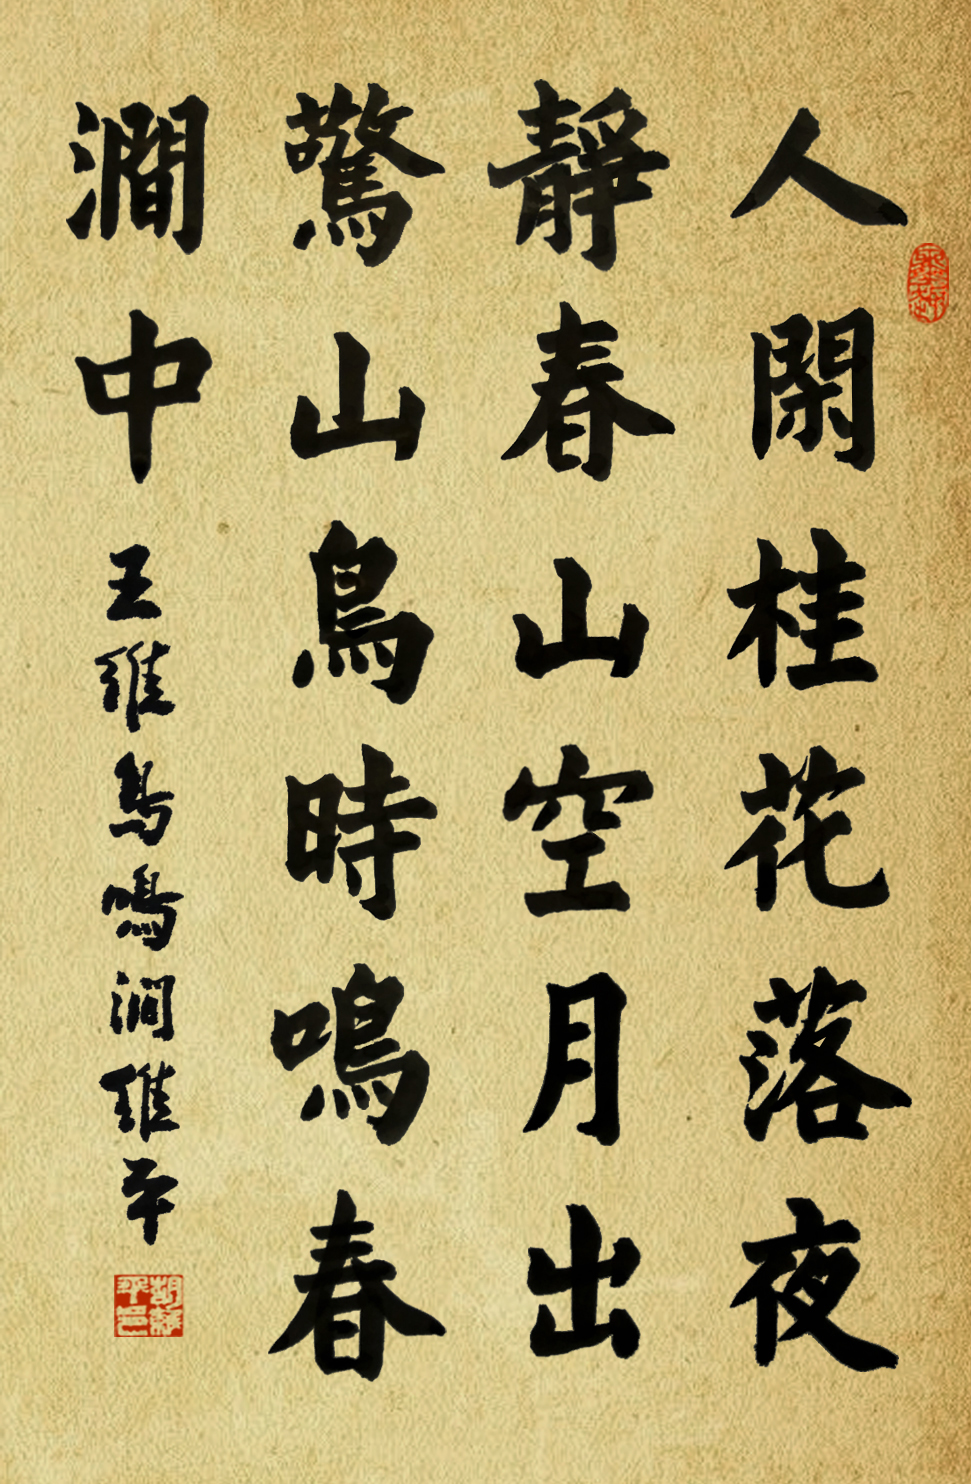 人閑桂花落夜
靜春山空月出
驚山鳥時鳴春
澗中
王維鳥鳴澗維平